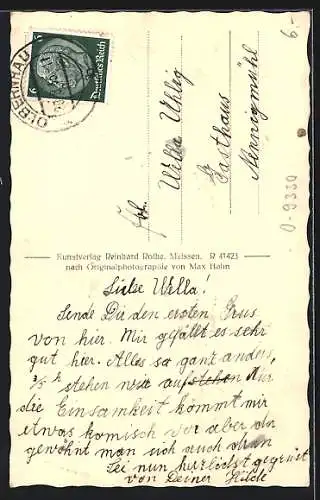 OLBERNHAU
6 Deutsches Reich 6
6.-
Frl.
Wella Uhlig
Gasthaus
Nennigmühl
0-9339
Kunstverlag Reinhard Rothe, Meissen. R 41423
nach Originalphotographie von Max Hahn
Liebe Wella!
Sende Dir den ersten Grus
von hier. Mir gefällt es sehr
gut hier. Alles so ganz anders,
stehen wir auf Nur
die Einsamkeit kommt mir
etwas komisch vor aber da
gewöhnt man sich auch dran
Sei nun herzlichst gegrüsst
von Deiner Hilde